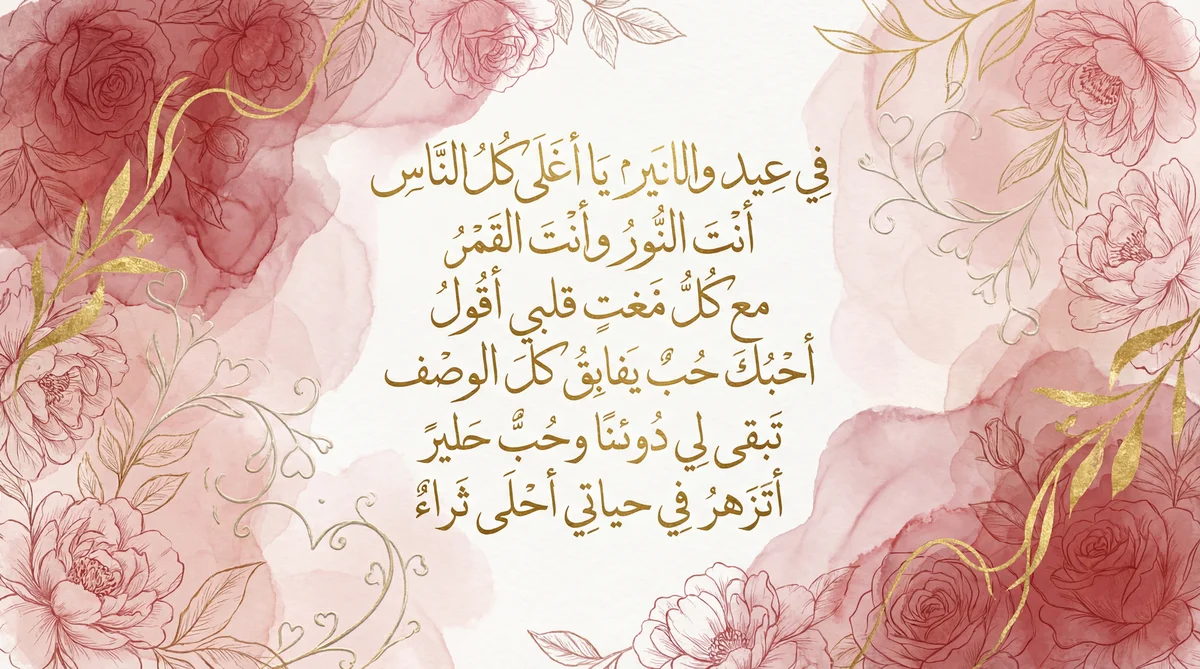 في عِيد والانَير يَا أغَلَى كُلُ النَّاسِ
أنْتَ النُّورُ وأنْتَ القَمْرُ
مع كُلُّ مَغتٍ قلبي أقُولُ
أحْبُكَ حُبٌ يَفابِقُ كلَ الوصْف
تَبقى لِي دُوئنًا وحُبٌّ حَليرً
أتَزَهرُ فِي حياتِي أحْلَى ثَراءٌ